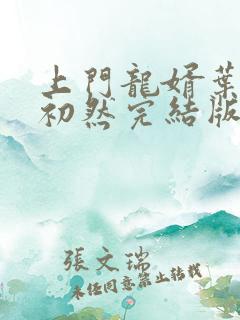 上門龍婿葉
初然完結版
張文瑞
未经同意禁止转载